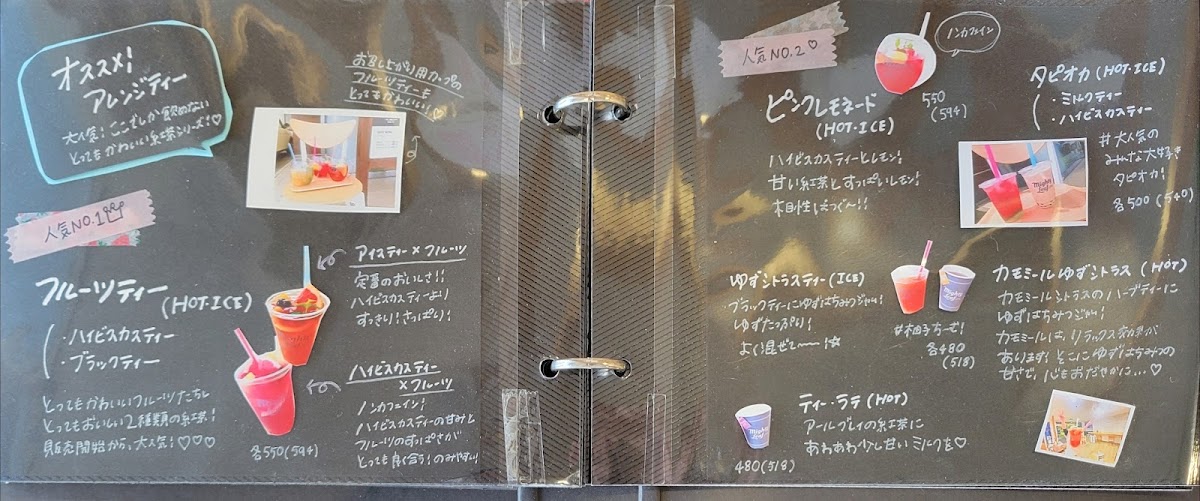 オススメ!
アレンジティー
大人気!ここでしか飲めない
とってもかわいい紅茶シリーズ!♡
お召し上がり用カップの
フルーツティーも
とってもかわいい!♡
人気NO.1
フルーツティー
(HOT・ICE)
・ハイビスカスティー
・ブラックティー
とってもかわいいフルーツたちと
とってもおいしい2種類の紅茶!
販売開始から、大人気!♡♡♡
各550(594)
アイスティー×フルーツ
定番のおいしさ!!
ハイビスカスティーより
すっきり!さっぱり!
ハイビスカスティー
×フルーツ
ノンカフェイン!
ハイビスカスティーの甘みと
フルーツのすっぱさが
とっても良く合う!のみやすい!
人気NO.2♡
ノンカフェイン
550
(594)
ピンクレモネード
(HOT・ICE)
ハイビスカスティーとレモン!
甘い紅茶とすっぱいレモン!
相性
タピオカ(HOT・ICE)
・ミルクティー
・ハイビスカスティー
#大人気の
みんな大好き
タピオカ!
各500(540)
ゆずシトラスティー(ICE)
・ブラックティーにゆずはちみつジャム!
ゆずたっぷり!
よく混ぜて〜〜!☆
#柚子ちーず!
各480
(518)
カモミールゆずシトラス(HOT)
カモミールシトラスのハーブティーに
ゆずはちみつジャム!
カモミールは、リラックス効果が
あります!そこにゆずはちみつの
甘さで、心もおだやかに…♡
ティー・ラテ(HOT)
アールグレイの紅茶に
あわあわ少し甘いミルクを♡
480(518)